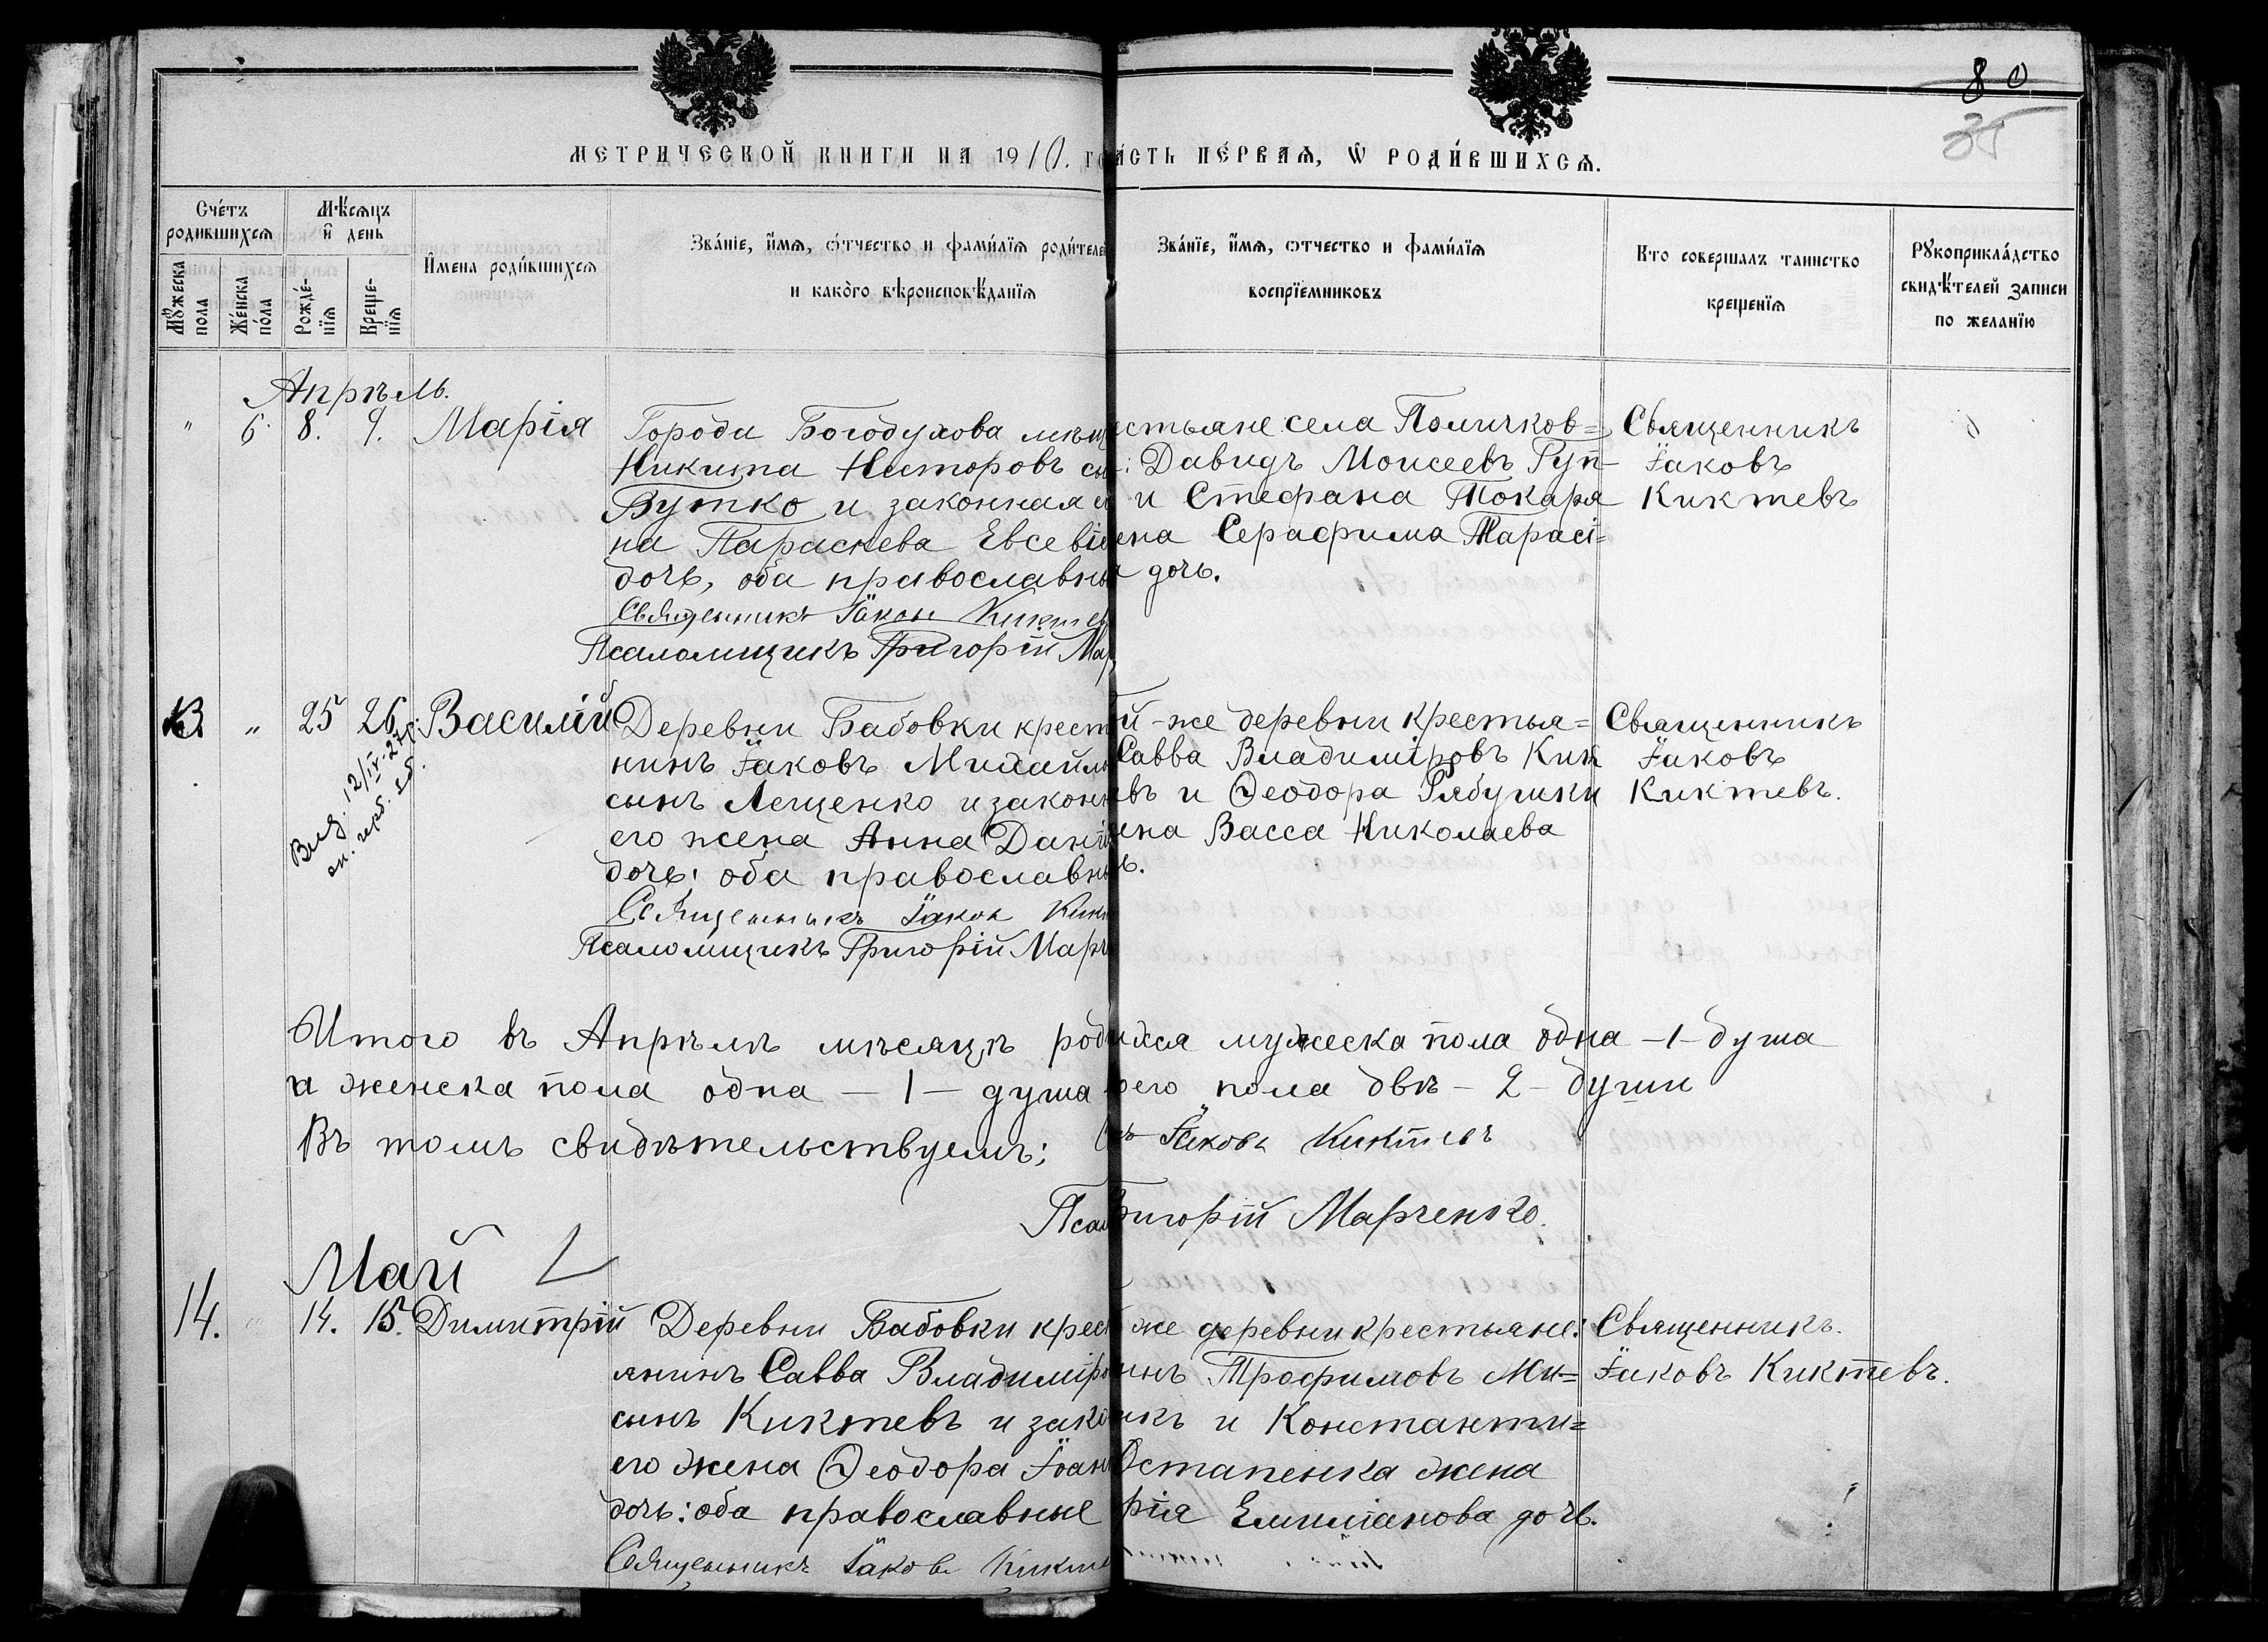 80
35
МЕТРИЧЕСКОЙ КНИГИ НА 1910. го
а́сть пе́рваѧ, ѡ҆ роди́вшихсѧ.
Сче́тъ родившихсѧ
Мѣ́сѧцъ и҆ день
И҆мена роди́вшихсѧ
Зва́нїе, и҆́мѧ, ѻ҆́тчество и фами́лїѧ роди́теле
и како́го вѣроисповѣ́данїѧ
Зва́нїе, и҆́мѧ, ѻтчество и фами́лїѧ
воспрїе́мниковъ
Кто совершалъ таинство
крещенїѧ
Рꙋкоприкла́дство
свидѣ́телей записи
по желанїю
Мꙋ́жеска пола
Же́нска по́ла
Рожде́-
нїѧ
Креще-
нїѧ
Апрѣль.
" 6. 8. 9. Марія
Города Богодухова мѣщ
Никита Нисторовъ сы
Бутко и законная е
на Параскева Евсевіе
дочь, оба православны
Священникъ Іаковъ Киктев
Псаломщикъ Григорій Мар
естьяне села Поличков=
: Давидъ Моисеевъ Гуп-
и Стефана Токаря
ена Серафима Тарасі=
дочь.
Священникъ
Іаковъ
Киктевъ
13. " 25 26. Василій
Выд. 12/IV-27 г.
Деревни Бабовки крест
нинъ Іаковъ Михайл
сынъ Лещенко и закон
его жена Анна Даніи
дочь: оба православн
Священникъ Іаковъ Кик
Псаломщикъ Григорій Марч
й-же деревни крестья=
Савва Владиміровъ Кик
евъ и Ѳеодора Рябушки
ена Васса Николаева
ь.
Священникъ
Іаковъ
Киктевъ.
Итого въ Апрѣлѣ мѣсяцѣ родилхся мужеска пола одна -1- душа
и женска пола одна - 1 - душа оего пола двѣ - 2 - души
Въ томъ свидѣтельствуемъ: Іаковъ Киктевъ
Псал Григорій Марченко.
Май
14. " 14. 15. Димитрій
Деревни Бабовки крес
янинъ Савва Владиміро
сынъ Киктевъ и зако
его жена Ѳеодора Іоан
дочь: оба православные
Священникъ Іаковъ Кикте
же деревни крестьяне:
инъ Трофимовъ Ми=
икъ и Константи=
Остапенка жена
рія Емиліанова дочь.
Священникъ.
Іаковъ Киктевъ.